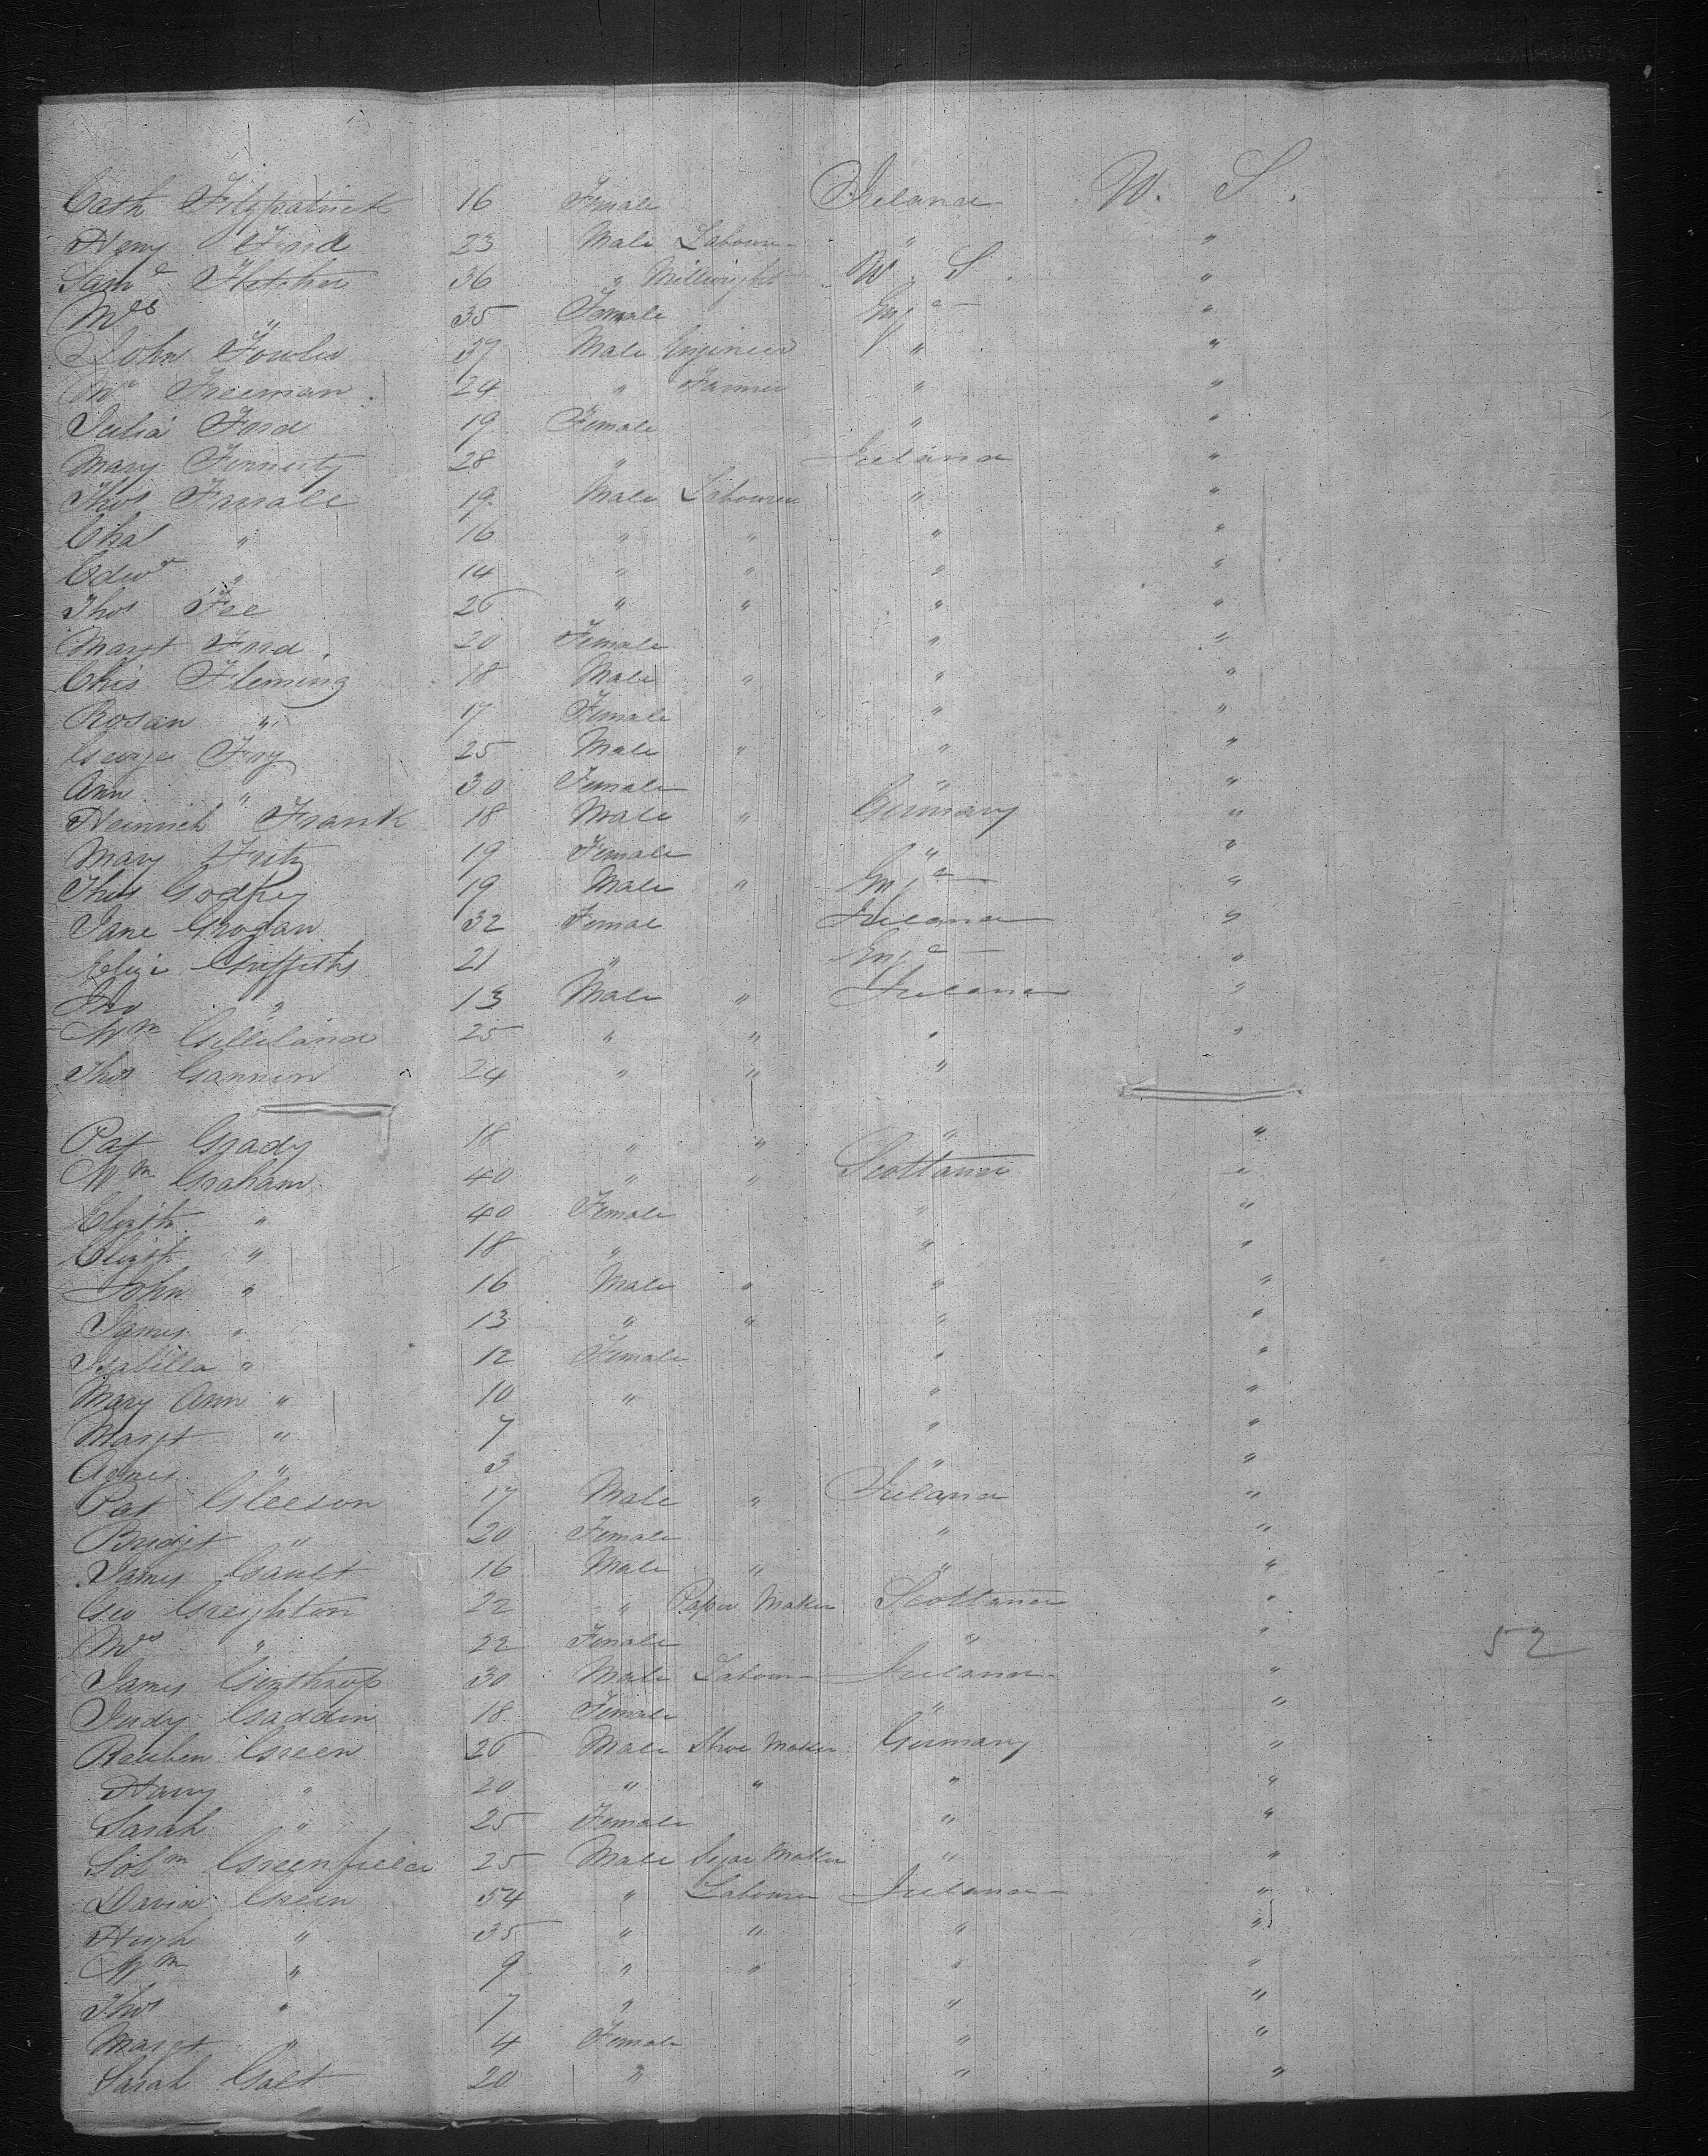 Cath Fitzpatrick 16 Female Ireland U. S.
Heny Ford 23 Male Labourer " "
Saml Fletcher 36 " Millwright U. S. "
Mrs " 35 Female Engd "
John Fowles 37 Male Engineer " "
Wm Freeman 24 " Farmer " "
Julia Ford 19 Female " "
Mary Finnerty 28 " Ireland "
Thos Farrale 19 Male Labourer " "
Chas " 16 " " " "
Edwd " 14 " " " "
Thos Fee 26 " " " "
Margt Ford 20 Female " "
Chis Fleming 18 Male " " "
Rosan " 17 Female " "
George Foy 25 Male " " "
Ann " 30 Female " "
Heinrich Frank 18 Male " Germany "
Mary Fritz 19 Female " "
Thos Godfrey 19 Male " Engd "
Jane Grogan 32 Female Ireland "
Eliza Griffiths 21 " Engd "
Tho " 13 Male " Ireland "
Wm Gilliland 25 " " " "
Thos Gannon 24 " " "
Pat Grady 18 " " " "
Wm Graham 40 " " Scotland "
Elizth " 40 Female " "
Elizth " 18 " " "
John " 16 Male " " "
James " 13 " " " "
Isabella " 12 Female " "
Mary Ann " 10 " " "
Margt " 7 " "
Agnes " 3 " "
Pat Gleeson 17 Male " Ireland "
Bridgt " 20 Female " "
James Gault 16 Male " " "
Geo Greighton 22 " Paper Maker Scotland "
Mrs " 22 Female " "
52
James Ginthrop 30 Male Labour Ireland "
Judy Gaddin 18 Female " "
Reuben Green 26 Male Shoe Maker Germany "
Harry " 20 " " " "
Sarah " 25 Female " "
Solm Greenfield 25 Male Segar Maker " "
David Green 54 " Labourer Ireland "
Hugh " 35 " " " "
Wm " 9 " " " "
Thos " 7 " " "
Margt " 4 Female " "
Sarah Galt 20 " " "